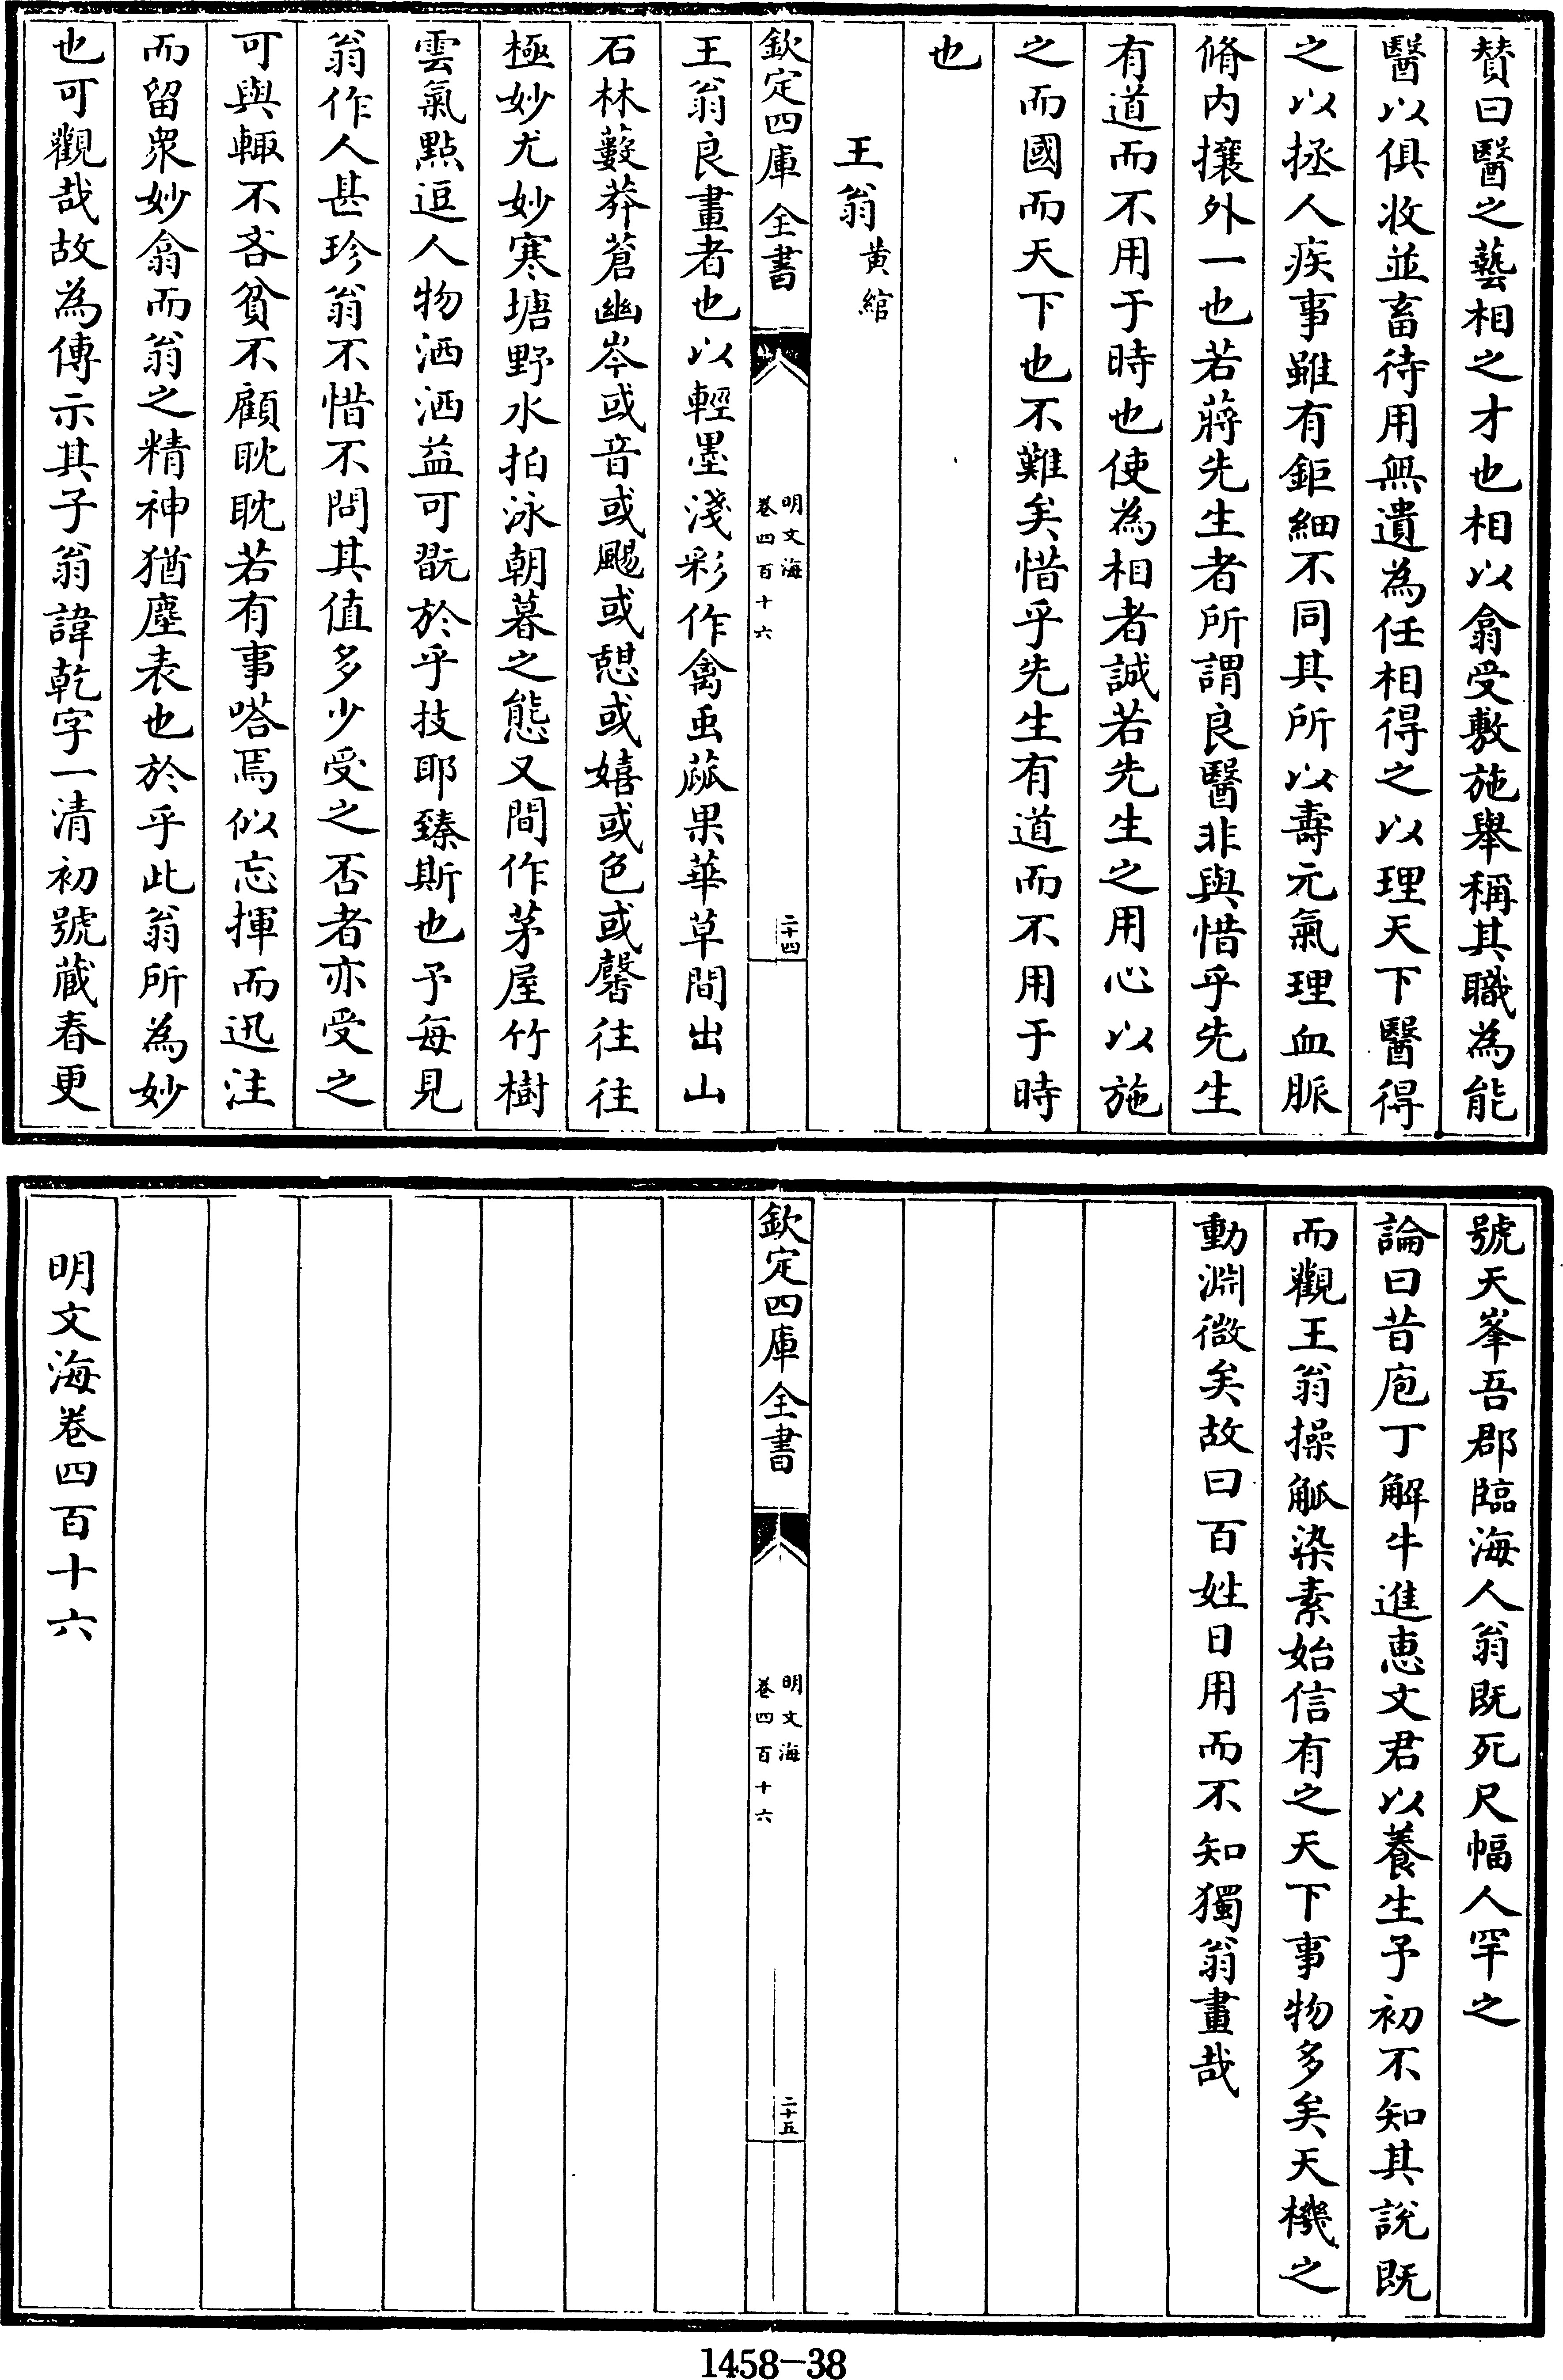 賛曰醫之藝相之才也相以翕受敷施舉稱其職為能
醫以俱收並畜待用無遺為任相得之以理天下醫得
之以拯人疾事雖有鉅細不同其所以壽元氣理血脈
脩内攘外一也若蔣先生者所謂良醫非與惜乎先生
有道而不用于時也使為相者誠若先生之用心以施
之而國而天下也不難矣惜乎先生有道而不用于時
也
王翁黄綰
欽定四庫全書
明文海
卷四百十六
二十四
王翁良畫者也以輕墨淺彩作禽䖝蓏果華草間出山
石林薮莽蒼幽岑或音或颺或憇或嬉或色或馨往往
極妙尤妙寒塘野水拍泳朝暮之態又間作茅屋竹樹
雲氣點逗人物洒洒益可翫於乎技耶臻斯也予每見
翁作人甚珍翁不惜不問其值多少受之否者亦受之
可與輙不吝貧不顧耽耽若有事嗒焉似忘揮而迅注
而留衆妙翕而翁之精神猶塵表也於乎此翁所為妙
也可觀哉故為傳示其子翁諱乾字一清初號蔵春更
號天峯吾郡臨海人翁既死尺幅人罕之
論曰昔庖丁解牛進惠文君以養生予初不知其說既
而觀王翁操觚染素始信有之天下事物多矣天機之
動淵微矣故曰百姓日用而不知獨翁畫哉
欽定四庫全書
明文海
卷四百十六
二十五
明文海卷四百十六
1458-38